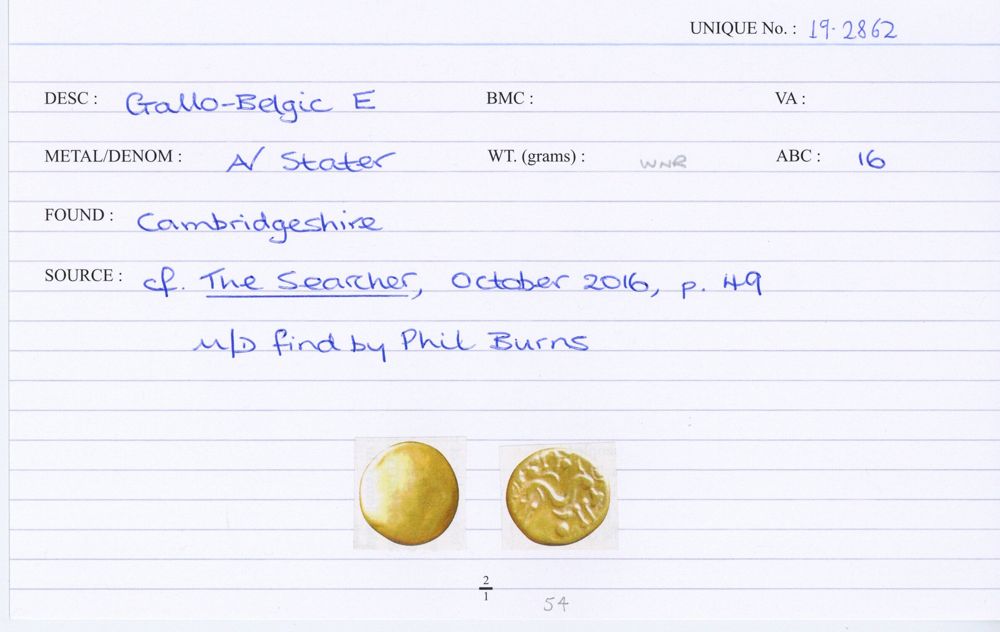 UNIQUE No. : 19.2862
DESC : Gallo-Belgic E BMC : VA :
METAL/DENOM : A/ Stater WT. (grams) : WNR ABC : 16
FOUND : Cambridgeshire
SOURCE : cf. The Searcher, October 2016, p. 49
M/D find by Phil Burns
2
1
54